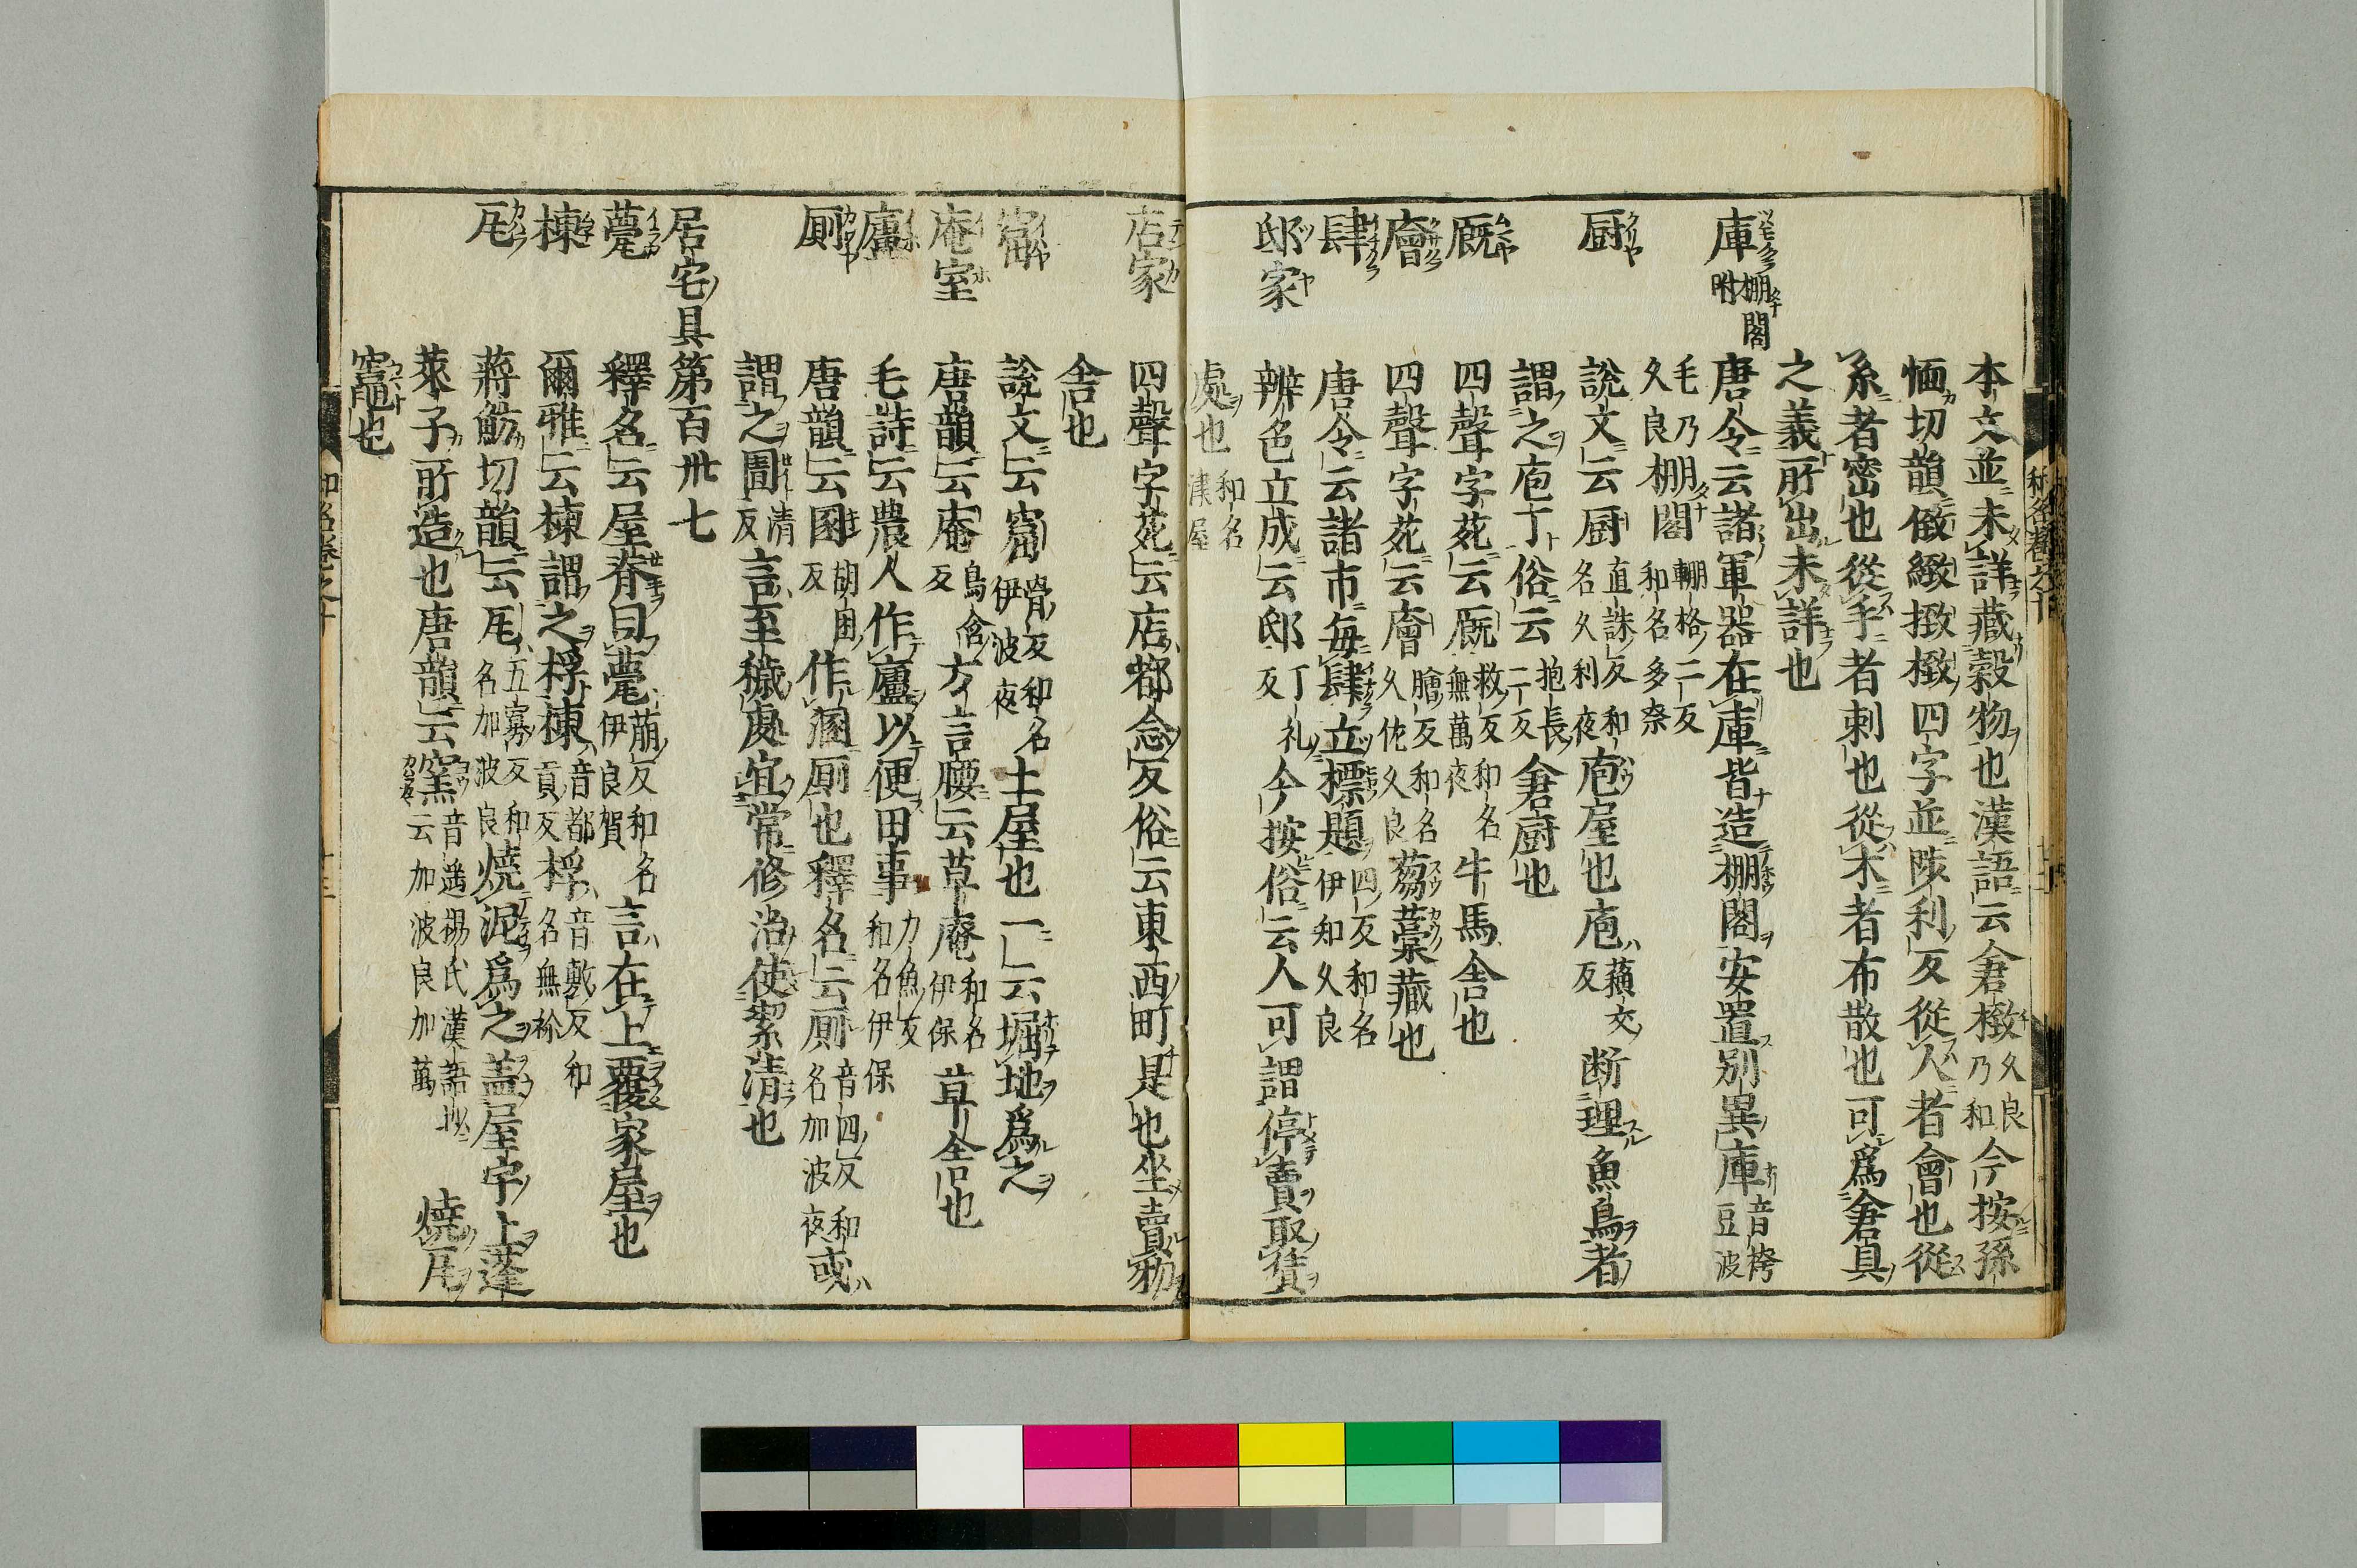 本文並未詳藏穀物也漢語云倉檄久良乃和今按孫
愐切韻儌緻㨖檄四字並陟利反從人者會也從
糸者密也從手者刺也從木者布散也可爲倉具
之義所出未詳也
庫棚閣附 唐令云諸軍器在庫皆造棚閣安置別異庫音袴豆波
毛乃久良棚閣輣格二反和名多奈
厨 説文云厨直誅反和名久利夜庖屋也庖薄交反断理魚鳥者
謂之庖丁俗云抱長二二反倉厨也
厩 四聲字苑云厩救反和名無萬夜牛馬舎也
廥 四聲字苑云廥膾反和名久佐久良蒭藁藏也
肆 唐令云諸市毎肆立標題四反和名伊知久良
邸家 辨色立成云邸丁礼反今按俗云人可謂停賣取賃
處也和名津屋
店家 四聲字苑云店都念反俗云東西町是也坐賣物
舎也
窨 説文云窨反和名伊波夜土屋也一云堀地爲之
庵室 唐韻云庵烏含反方言腰云草庵和名伊保草舎也
廬 毛詩云農人作廬以便田事力魚反和名伊保
厠 唐韻云圂胡困反作溷厠也釋名云厠音四反和名加波夜或
謂之圊清反言至穢處宜常修治使絜清也
居宅具第百卅七
甍 釋名云屋脊曰甍萠反和名伊良賀言在上覆家屋也
棟 爾雅云棟謂之桴棟音都貢反桴音敷反和名無祢
瓦 蔣魴切韻云瓦五寡反和名加波良焼泥爲之盖屋宇上蓬
莱子所造也唐韻云窯音遥楊氏漢語抄云加波良加萬焼瓦
窯竈也
和名卷之十
和名卷之十
十三